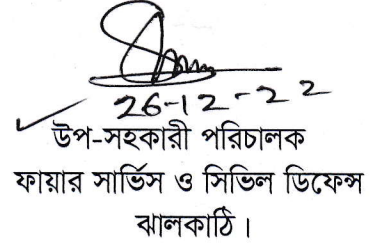 26-12-22
উপ-সহকারী পরিচালক
ফায়ার সার্ভিস ও সিভিল ডিফেন্স
ঝালকাঠি।